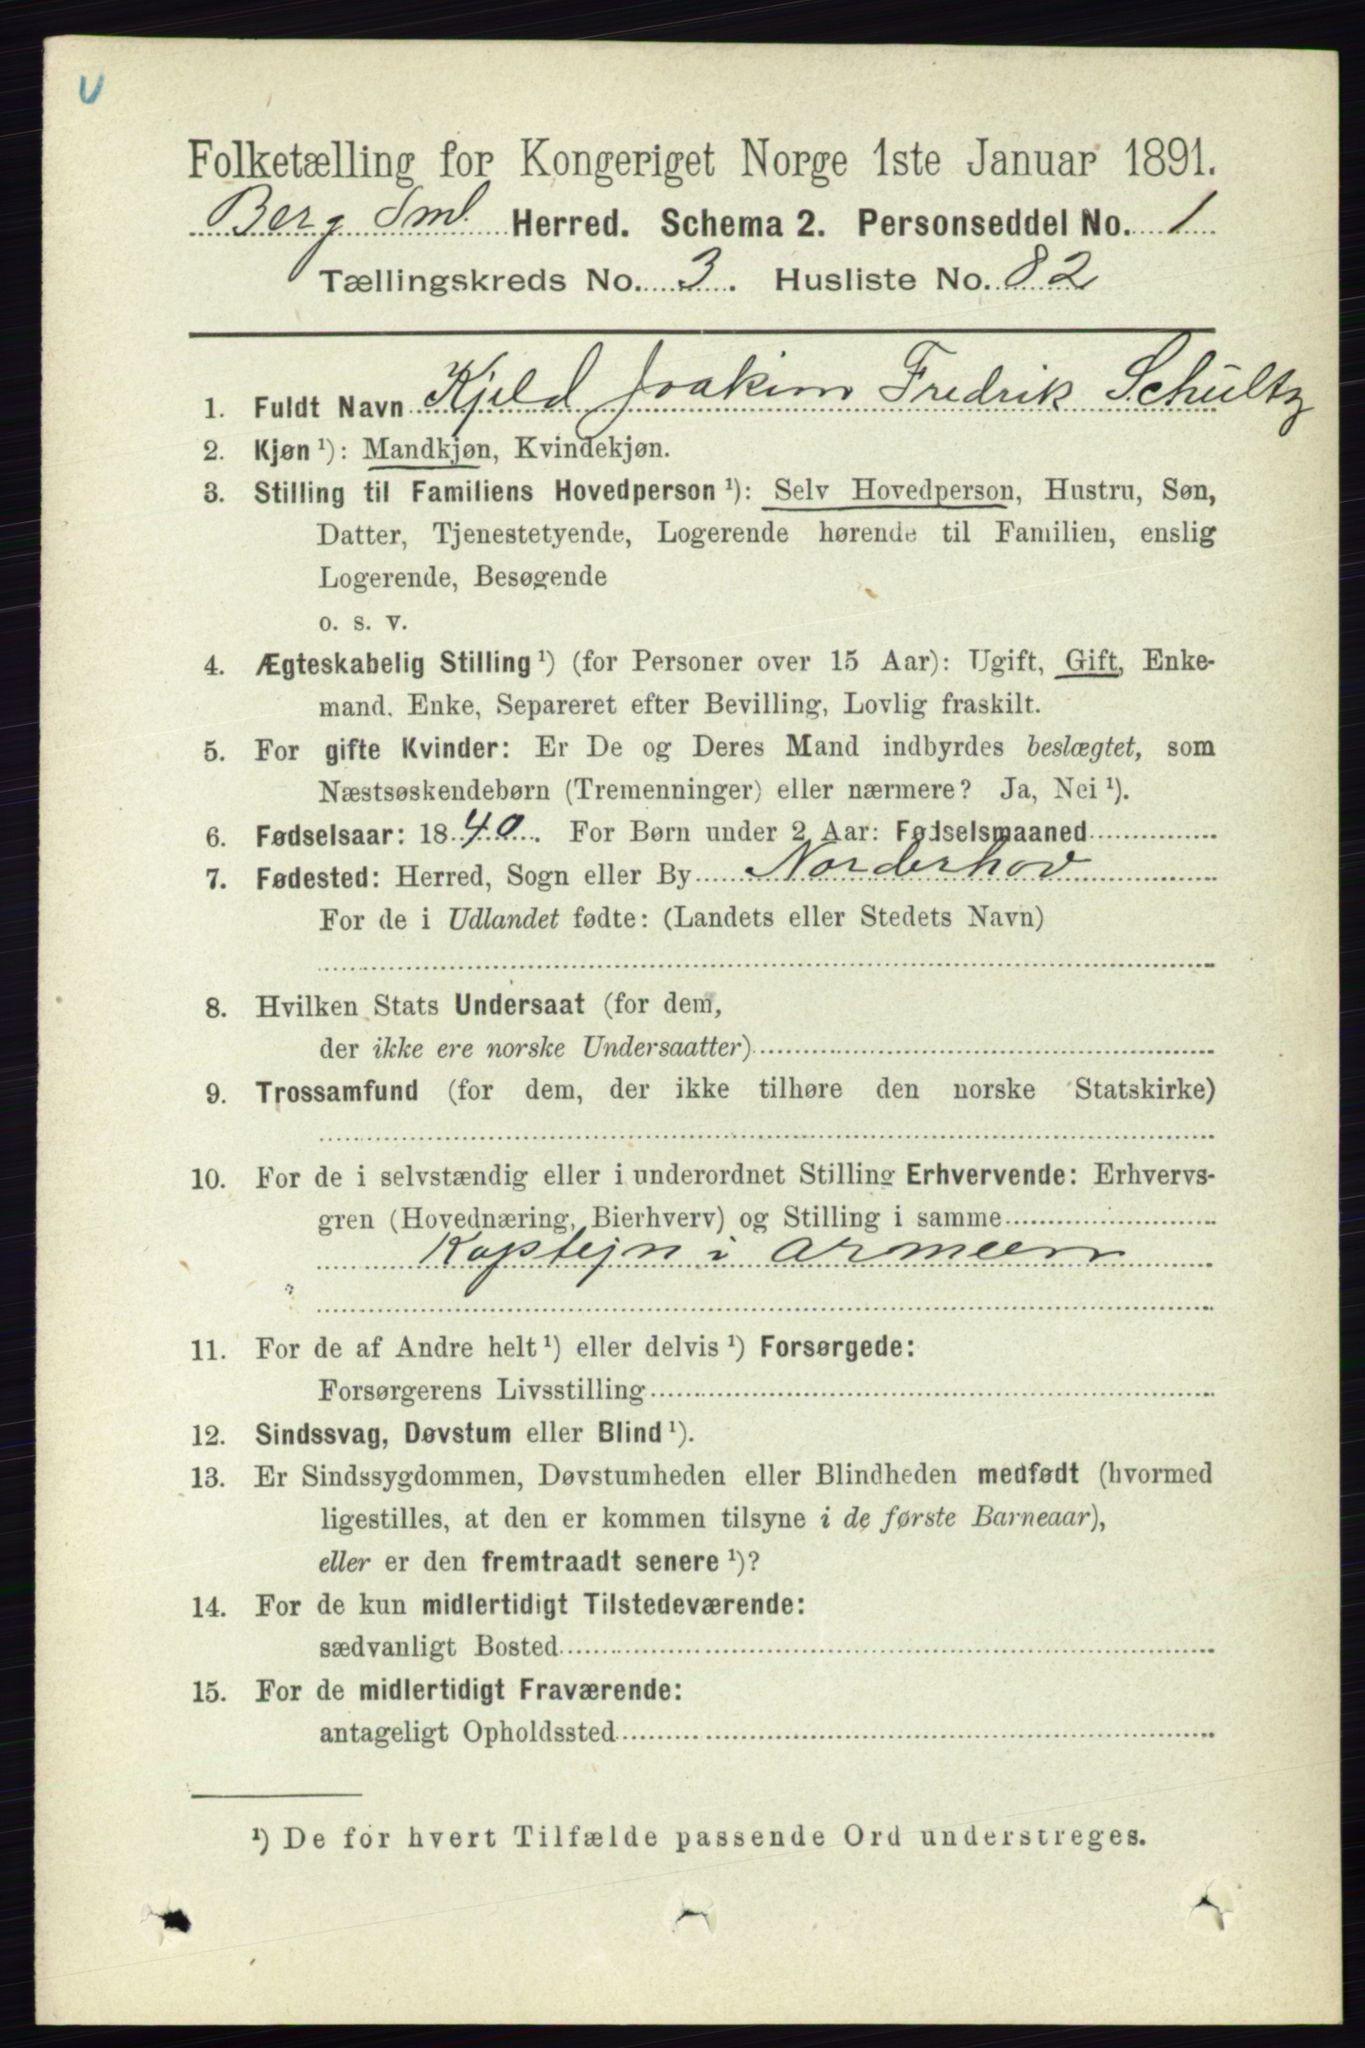 U
Folketælling for Kongeriget Norge 1ste Januar 1891.
Berg Sml. Herred. Schema 2. Personseddel No. 1
Tællingskreds No. 3. Husliste No. 82
1. Fuldt Navn Kjeld Joakim Fredrik Schultz
2. Kjøn ¹): Mandkjøn, Kvindekjøn.
3. Stilling til Familiens Hovedperson ¹): Selv Hovedperson, Hustru, Søn,
Datter, Tjenestetyende, Logerende hørende til Familien, enslig
Logerende, Besøgende
o. s. v.
4. Ægteskabelig Stilling ¹) (for Personer over 15 Aar): Ugift, Gift, Enke-
mand. Enke, Separeret efter Bevilling, Lovlig fraskilt.
5. For gifte Kvinder: Er De og Deres Mand indbyrdes beslægtet, som
Næstsøskendebørn (Tremenninger) eller nærmere? Ja, Nei ¹).
6. Fødselsaar: 1840. For Børn under 2 Aar: Fødselsmaaned
7. Fødested: Herred, Sogn eller By Norderhov
For de i Udlandet fødte: (Landets eller Stedets Navn)
8. Hvilken Stats Undersaat (for dem,
der ikke ere norske Undersaatter)
9. Trossamfund (for dem, der ikke tilhøre den norske Statskirke)
10. For de i selvstændig eller i underordnet Stilling Erhvervende: Erhvervs-
gren (Hovednæring, Bierhverv) og Stilling i samme
Kaptejn i Armeen
11. For de af Andre helt ¹) eller delvis ¹) Forsørgede:
Forsørgerens Livsstilling
12. Sindssvag, Døvstum eller Blind ¹).
13. Er Sindssygdommen, Døvstumheden eller Blindheden medfødt (hvormed
ligestilles, at den er kommen tilsyne i de første Barneaar),
eller er den fremtraadt senere ¹)?
14. For de kun midlertidigt Tilstedeværende:
sædvanligt Bosted
15. For de midlertidigt Fraværende:
antageligt Opholdssted
¹) De for hvert Tilfælde passende Ord understreges.